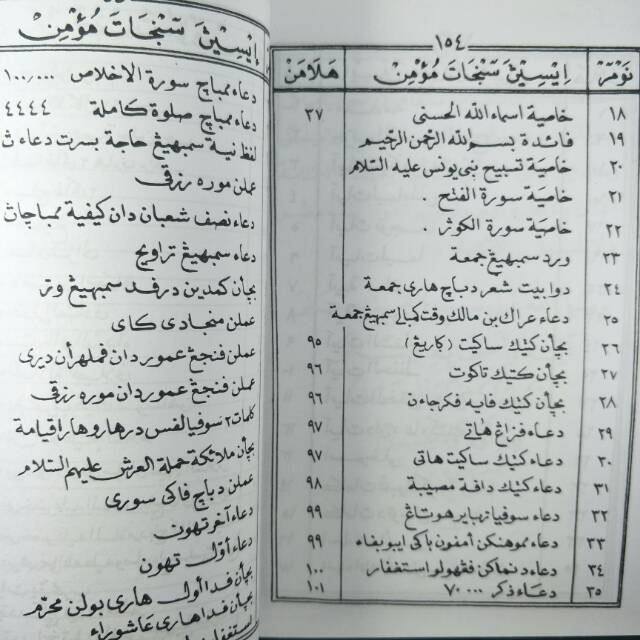 ١٥٤
نومر ايسين سنجات مؤمن هلامن
١٨ خاصية اسماء الله الحسنى ٣٧
١٩ فائدة بسم الله الرحمن الرحيم
٢٠ خاصية تسبيح نبي يونس عليه السلام
٢١ خاصية سورة الفتح .
٢٢ خاصية سورة الكوثر .
٢٣ ورد سمبهيغ جمعة
٢٤ دوا بيت شعر دباچ هاري جمعة
٢٥ دعاء عراك بن مالك وقت كمبالي سمبهيغ جمعة
٢٦ بچأن كتيك ساكيت (كاريغ) ٩٥
٢٧ بچأن كتيك تاكوت ٩٦
٢٨ بچأن كتيك فايه فكرجاءن ٩٦
٢٩ دعاء فنراغ هاتي ٩٧
٣٠ دعاء كتيك ساكيت هاتي ٩٧
٣١ دعاء كتيك دافة مصيبة ٩٨
٣٢ دعاء سوفيا ترباير هوتاغ ٩٩
٣٣ دعاء موهنكن امفون باكي ايبو بفاء ٩٩
٣٤ دعاء دنماكن فغهولو استغفار ١٠٠
٣٥ دعاء ذكر ٧٠٠٠٠ ١٠١
ايسين سنجات مؤمن
دعاء ممباچ سورة الاخلاص ١٠٠,٠٠٠
دعاء ممباچ صلوة كاملة ٤٤٤٤
لفظ نية سمبهيغ حاجة بسرت دعاء ث
عملن موره رزقي
دعاء نصف شعبان دان كيفية ممباچاث
دعاء سمبهيغ تراويح
بچأن كمدين درفد سمبهيغ وتر
عملن منجادي كاي
عملن فنجغ عمور دان فملهرأن ديري
عملن فنجغ عمور دان موره رزقي
كلمات ٢ سوفيا لفس در هارو هارا قيامة
بچأن ملائكة حملة العرش عليهم السلام
عملن دباچ فاكي سوري
دعاء آخر تهون
دعاء أول تهون
بچأن فدا أول هاري بولن محرم
بچأن فدا هاري عاشوراء